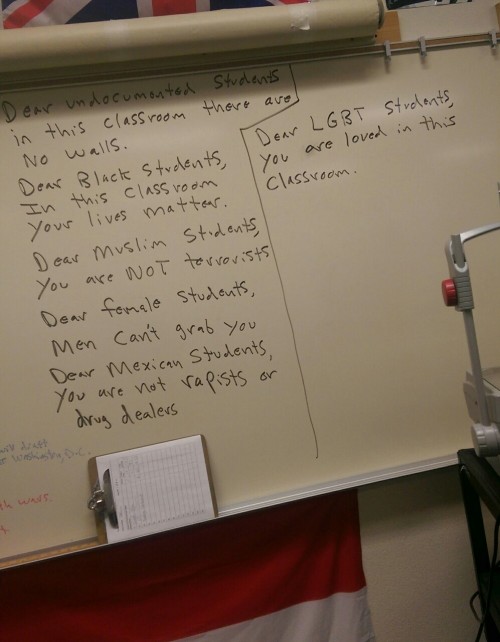 Dear undocumented Students
in this classroom there are
No walls.
Dear Black Students,
In this classroom
Your lives matter.
Dear Muslim Students,
You are NOT terrorists
Dear female students,
Men Can't grab you
Dear Mexican Students,
You are not rapists or
drug dealers
Dear LGBT Students,
You are loved in this
Classroom.
draft
Washington, D.C.